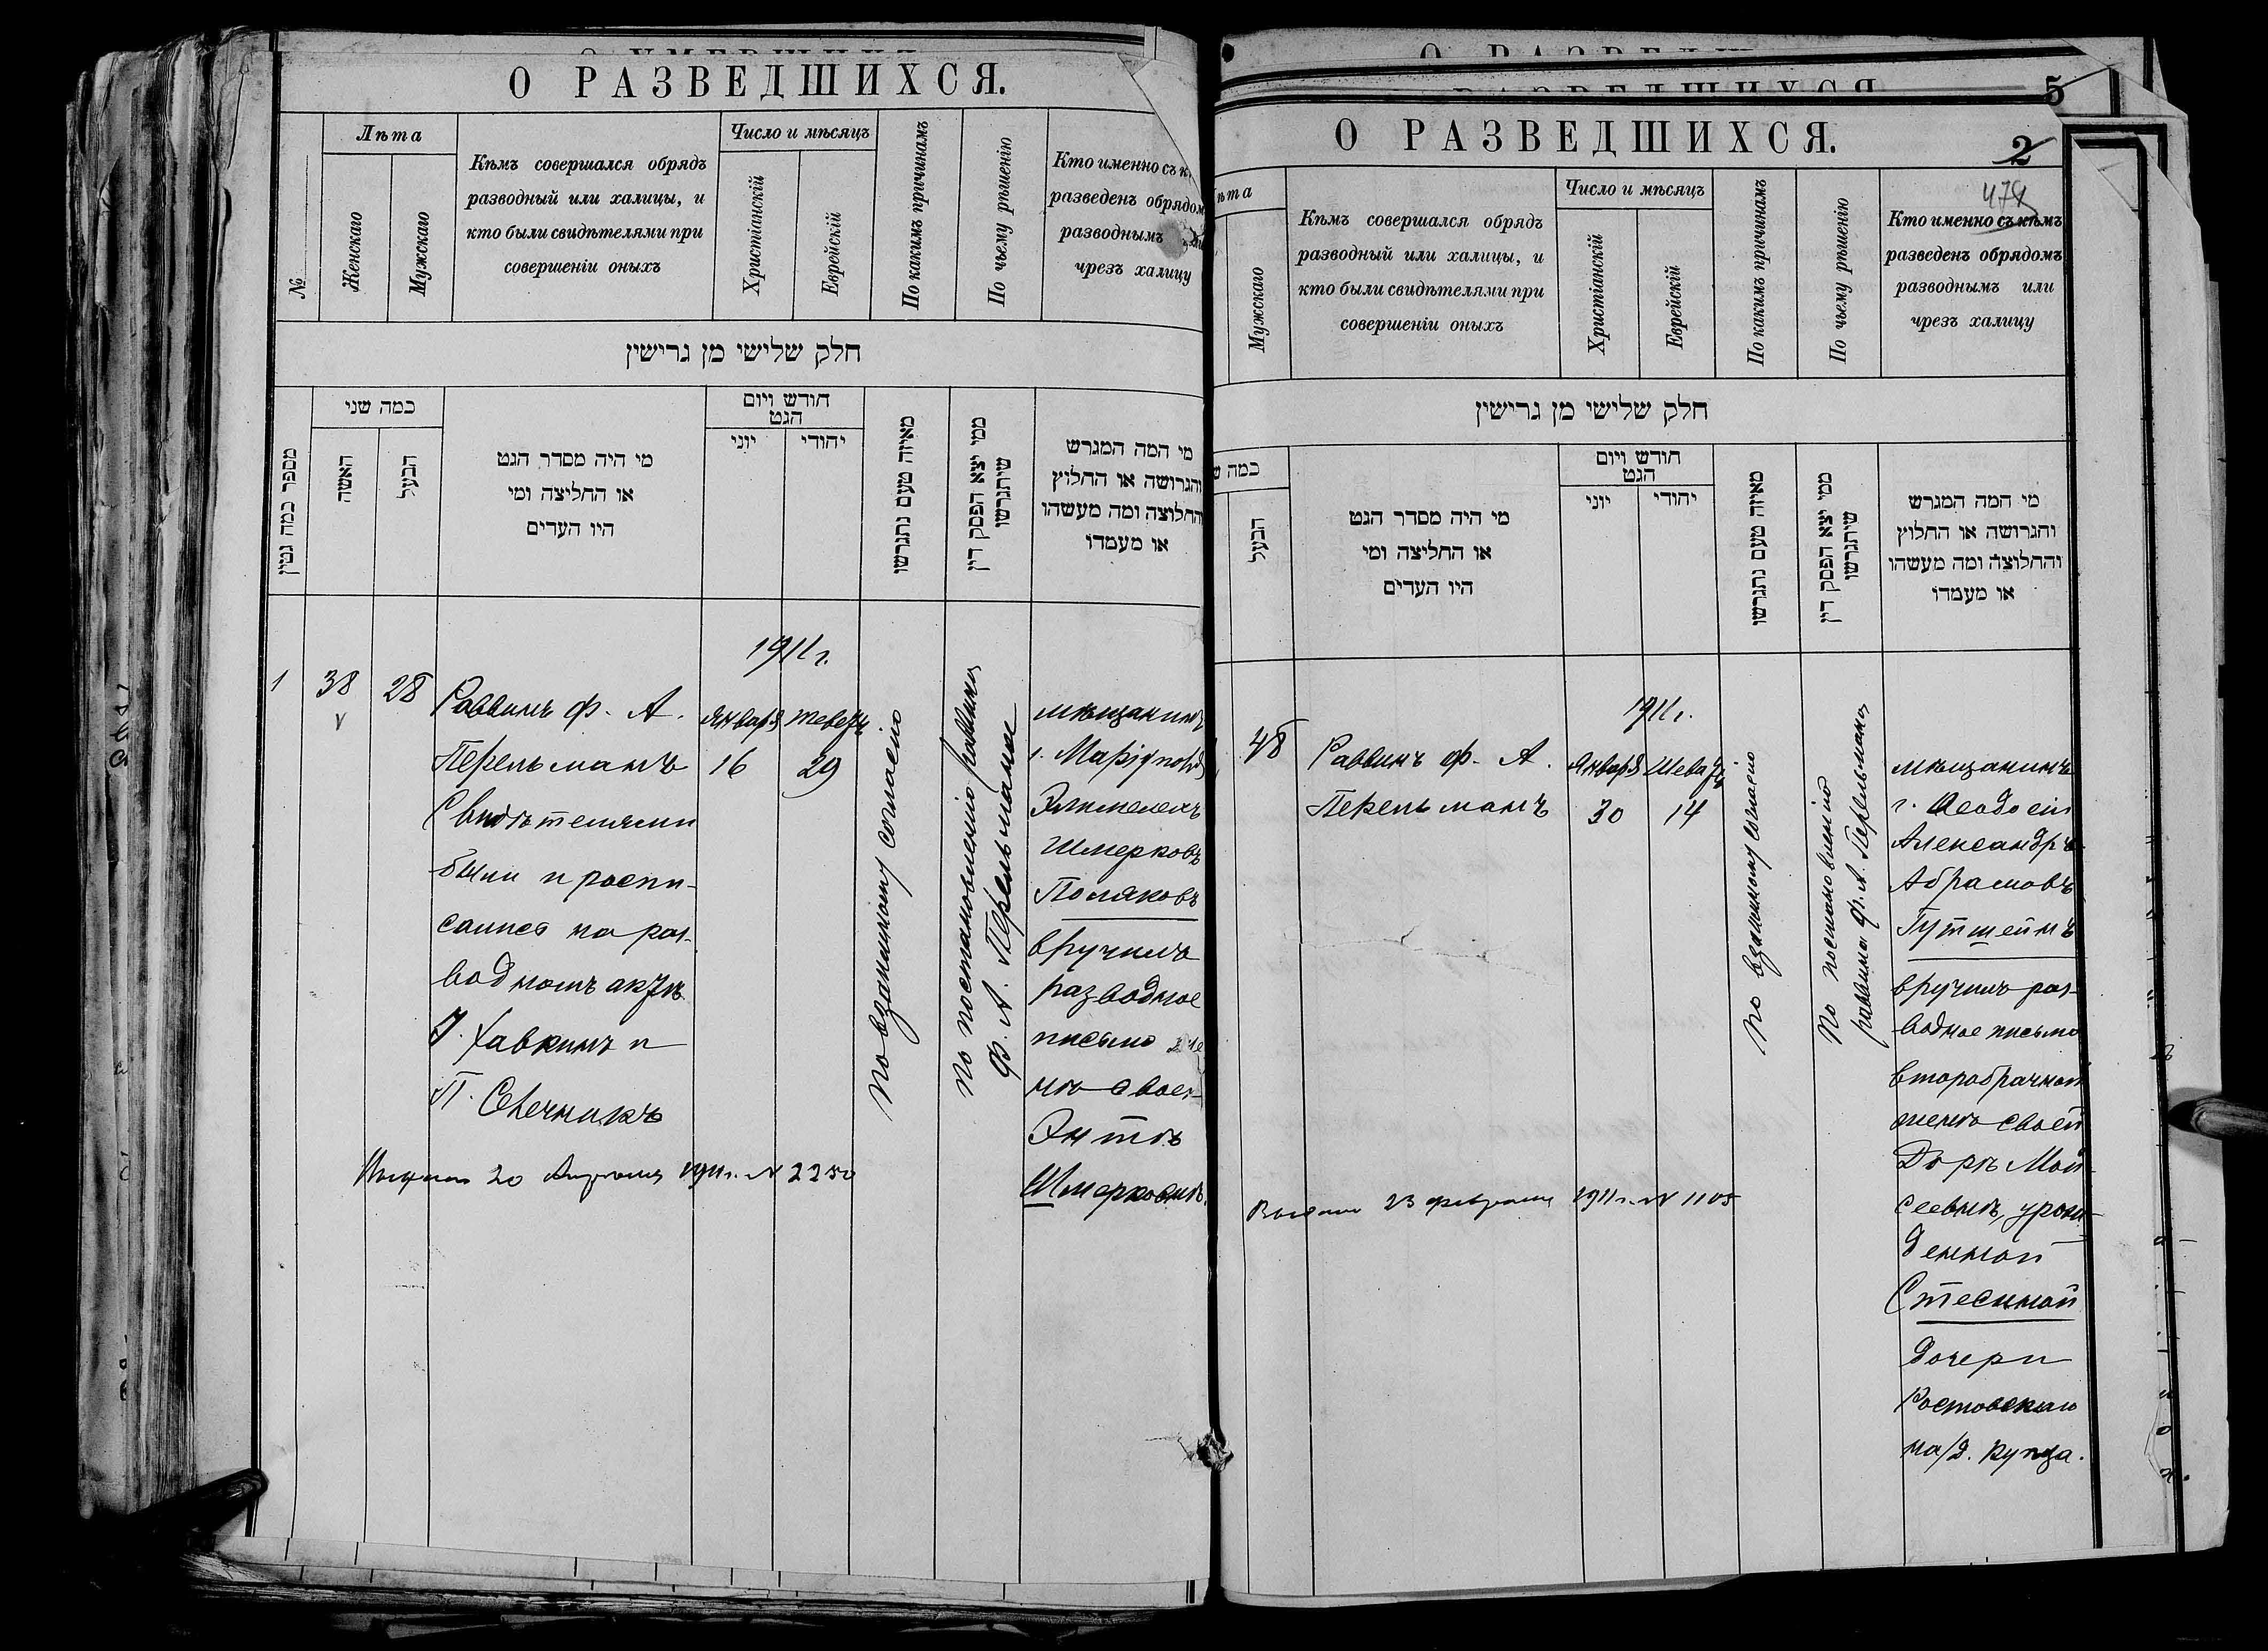 О РАЗВЕДШИХСЯ.
№
Лѣта
Женскаго
Мужскаго
Кѣмъ совершался обрядъ
разводный или халицы, и
кто были свидѣтелями при
совершеніи оныхъ
Число и мѣсяцъ
Христіанскій
Еврейскій
По какимъ причинамъ
По чьему рѣшенію
Кто именно съ к
разведенъ обрядом
разводнымъ
чрезъ халицу
חלק שלישי מן גרישין
מספר כמה גטין
כמה שני
האשה
הבעל
מי היה מסדר הגט
או החליצה ומי
היו העדים
חודש ויום
הגט
יוני
יהודי
מאיזה טעם נתגרשו
ממי יצא הפסק דין
שיתגרשו
מי המה המגרש
והגרושה או החלוץ
והחלוצה ומה מעשהו
או מעמדו
1
38
28
Раввинъ Ф. А.
Перельманъ
Свидѣтелями
были и роспи-
сались на раз-
водномъ актѣ
І. Хавкинъ и
П. Свечникъ
1911 г.
Января
16
Тевета
29
По взаимному согласію
По постановленію раввина
Ф. А. Перельмана
мѣщанинъ
г. Маріуполя
Элимелехъ
Шмерковъ
Поляковъ
вручилъ
разводное
письмо же
нѣ своей
Энтѣ
Шмерковнѣ.
20 1911 г. № 2250
О РАЗВЕДШИХСЯ.
5
2
479
ѣта
Мужскаго
Кѣмъ совершался обрядъ
разводный или халицы, и
кто были свидѣтелями при
совершеніи оныхъ
Число и мѣсяцъ
Христіанскій
Еврейскій
По какимъ причинамъ
По чьему рѣшенію
Кто именно съ кѣмъ
разведенъ обрядомъ
разводнымъ или
чрезъ халицу
חלק שלישי מן גרישין
כמה ש
הבעל
מי היה מסדר הגט
או החליצה ומי
היו העדים
חודש ויום
הגט
יוני
יהודי
מאיזה טעם נתגרשו
ממי יצא הפסק דין
שיתגרשו
מי המה המגרש
והגרושה או החלוץ
והחלוצה ומה מעשהו
או מעמדו
48
Раввинъ Ф. А.
Перельманъ
1911 г.
Января
30
Шевата
14
По взаимному согласію
По постановленію
раввина Ф. А. Перельмана
мѣщанинъ
г. Ѳеодосіи
Александръ
Абрамовъ
Гутштейнъ
вручилъ раз-
водное письмо
второбрачной
женѣ своей
Дорѣ Мой-
сеевнѣ, урож-
денной
Стесиной
дочери
Ростовскаго
на/Д. купца.
Выдано 23 февраля 1911 г. № 1105